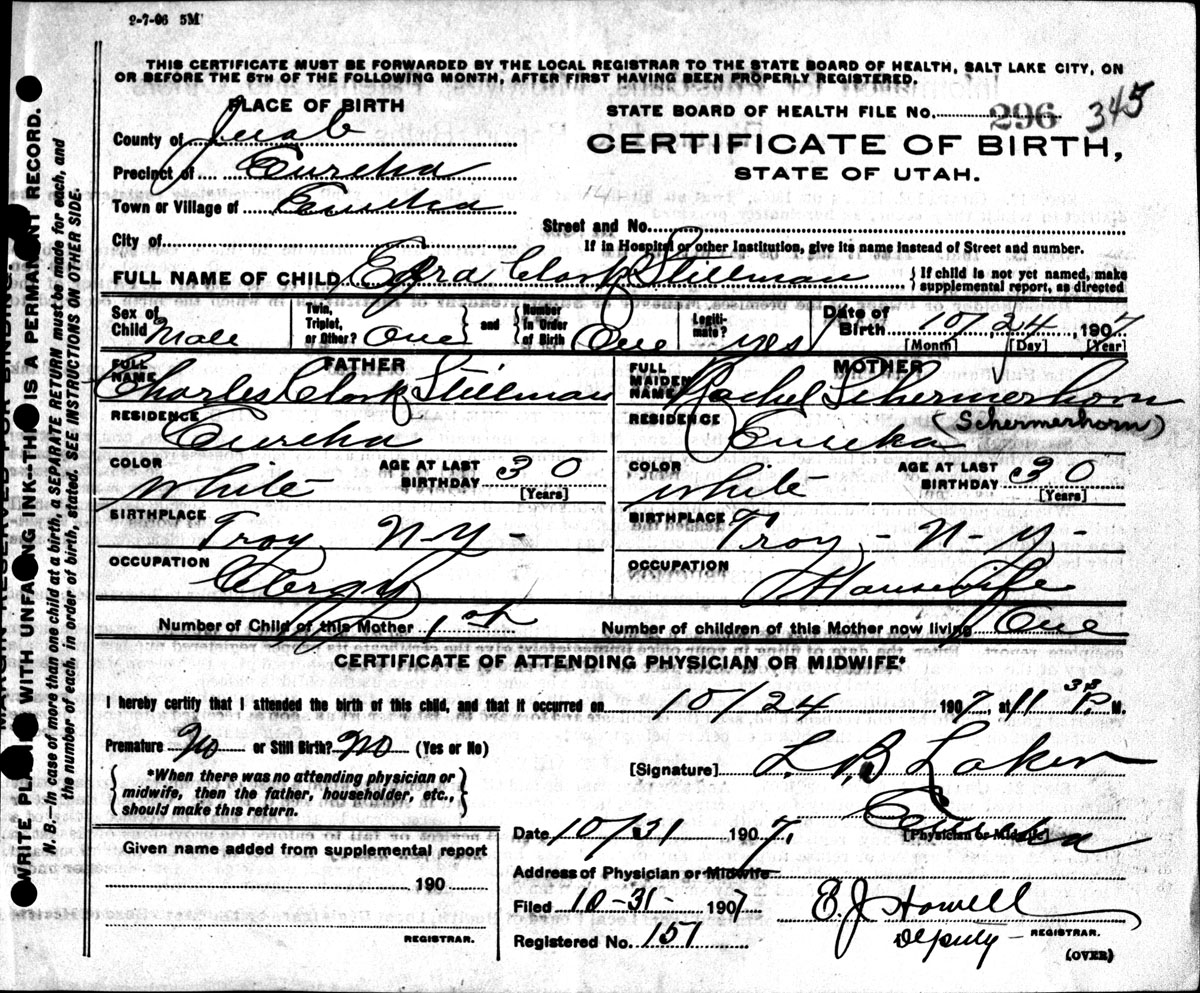 2-7-06 5M
THIS CERTIFICATE MUST BE FORWARDED BY THE LOCAL REGISTRAR TO THE STATE BOARD OF HEALTH, SALT LAKE CITY, ON
OR BEFORE THE 5TH OF THE FOLLOWING MONTH, AFTER FIRST HAVING BEEN PROPERLY REGISTERED.
PLACE OF BIRTH
County of Juab
Precinct of Eureka
Town or Village of Eureka
City of
STATE BOARD OF HEALTH FILE NO. 296 345
CERTIFICATE OF BIRTH,
STATE OF UTAH.
Street and No.
If in Hospital or other Institution, give its name instead of Street and number.
FULL NAME OF CHILD Ezra Clark Stillman {If child is not yet named, make
supplemental report, as directed
Sex of
Child Male
Twin,
Triplet,
or Other? One
and
Number
in Order
of Birth One
Legiti-
mate? yes
Date of
Birth 10/24, 1907
[Month] [Day] [Year]
FATHER
FULL
NAME Charles Clark Stillman
RESIDENCE
Eureka
COLOR
White
AGE AT LAST
BIRTHDAY 30
[Years]
BIRTHPLACE
Troy N-Y-
OCCUPATION
Clergy
MOTHER
FULL
MAIDEN
NAME Rachel Schermerhorn
(Schermerhorn)
RESIDENCE
Eureka
COLOR
White
AGE AT LAST
BIRTHDAY 30
[Years]
BIRTHPLACE
Troy - N-Y-
OCCUPATION
Housewife
Number of Child of this Mother 1st
Number of children of this Mother now living One
CERTIFICATE OF ATTENDING PHYSICIAN OR MIDWIFE*
I hereby certify that I attended the birth of this child, and that it occurred on 10/24 1907, at 11 33 P. M.
Premature No or Still Birth? No (Yes or No)
{*When there was no attending physician or
midwife, then the father, householder, etc.,
should make this return.}
Given name added from supplemental report
190
REGISTRAR.
[Signature] L. B. Laker
[Physician or Midwife]
Date 10/31 1907.
Address of Physician or Midwife Eureka
Filed 10-31- 1907
E. J. Howell
Deputy - REGISTRAR.
Registered No. 151
(OVER)
WRITE PLAINLY WITH UNFADING INK--THIS IS A PERMANENT RECORD.
N. B.—In case of more than one child at a birth, a SEPARATE RETURN must be made for each, and
the number of each, in order of birth, stated. SEE INSTRUCTIONS ON OTHER SIDE.